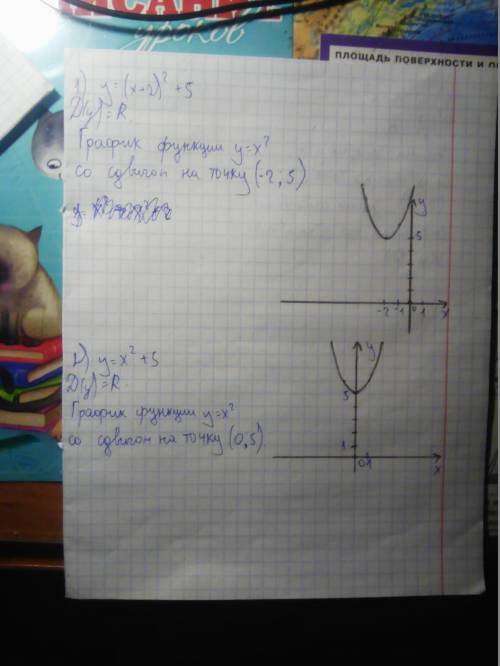 ИСАНИЕ
уроков
ПЛОЩАДЬ ПОВЕРХНОСТИ И О
1) y=(x+2)²+5
D(y)=R
График функции y=x²
со сдвигом на точку (-2; 5)
y=
y
5
-2 -1 0 1 x
2) y=x²+5
D(y)=R
График функции y=x²
со сдвигом на точку (0,5).
y
5
1
0 1 x